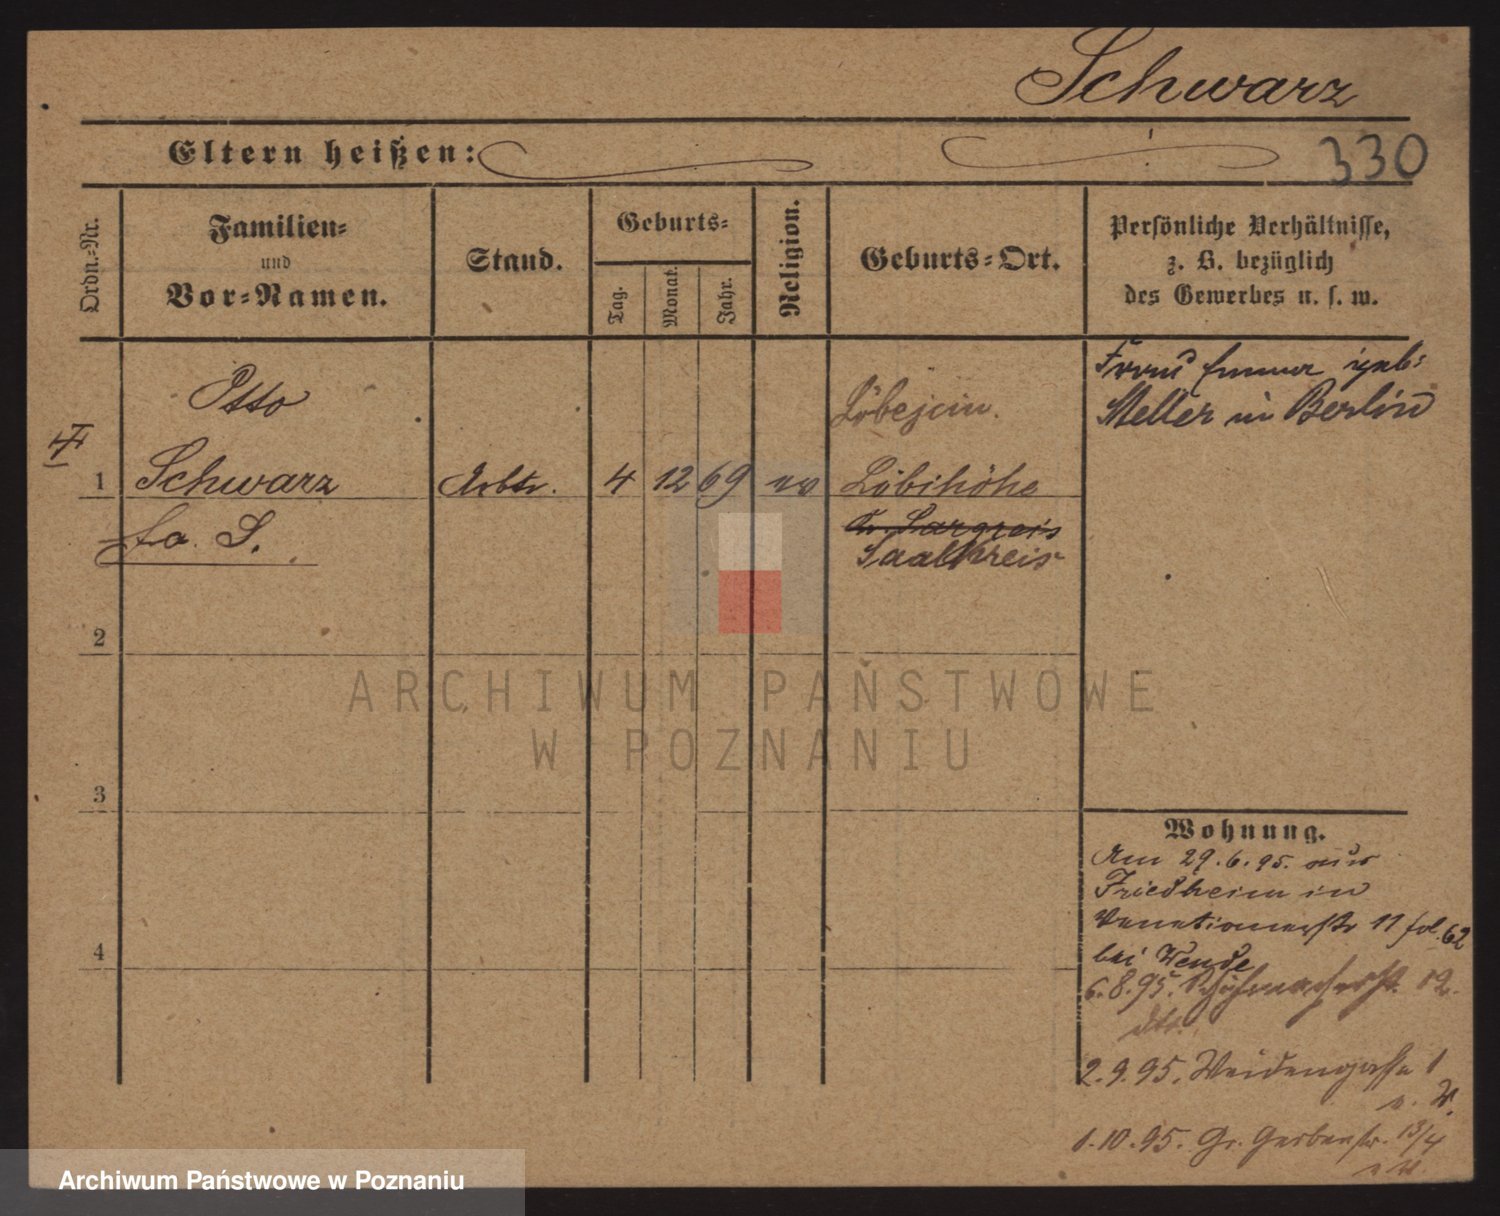 Schwarz
Eltern heißen:
330
Ordn.-Nr.
Familien-
und
Vor-Namen.
Stand.
Geburts-
Tag.
Monat.
Jahr.
Religion.
Geburts-Ort.
Persönliche Verhältnisse,
z. B. bezüglich
des Gewerbes u. s. w.
Otto
1
Schwarz
Arbtr.
4
12
69
ev
Löbejün.
Löbihöhe
Saalkreis
Frau Emma geb:
Meller in Berlin
2
3
4
Wohnung.
Am 29.6.95. aus
Friedheim in
Venetianerstr 11 fol. 62
bei Wende
6.8.95. Schuhmacherstr. 12.
dto.
2.9.95. Weidengasse 1
1.10.95. Gr. Gerberstr. 13/4
ARCHIWUM PAŃSTWOWE
W POZNANIU
Archiwum Państwowe w Poznaniu